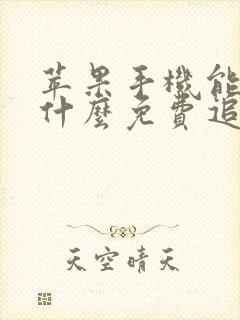 苹果手機能
什麼免費追
天空晴天